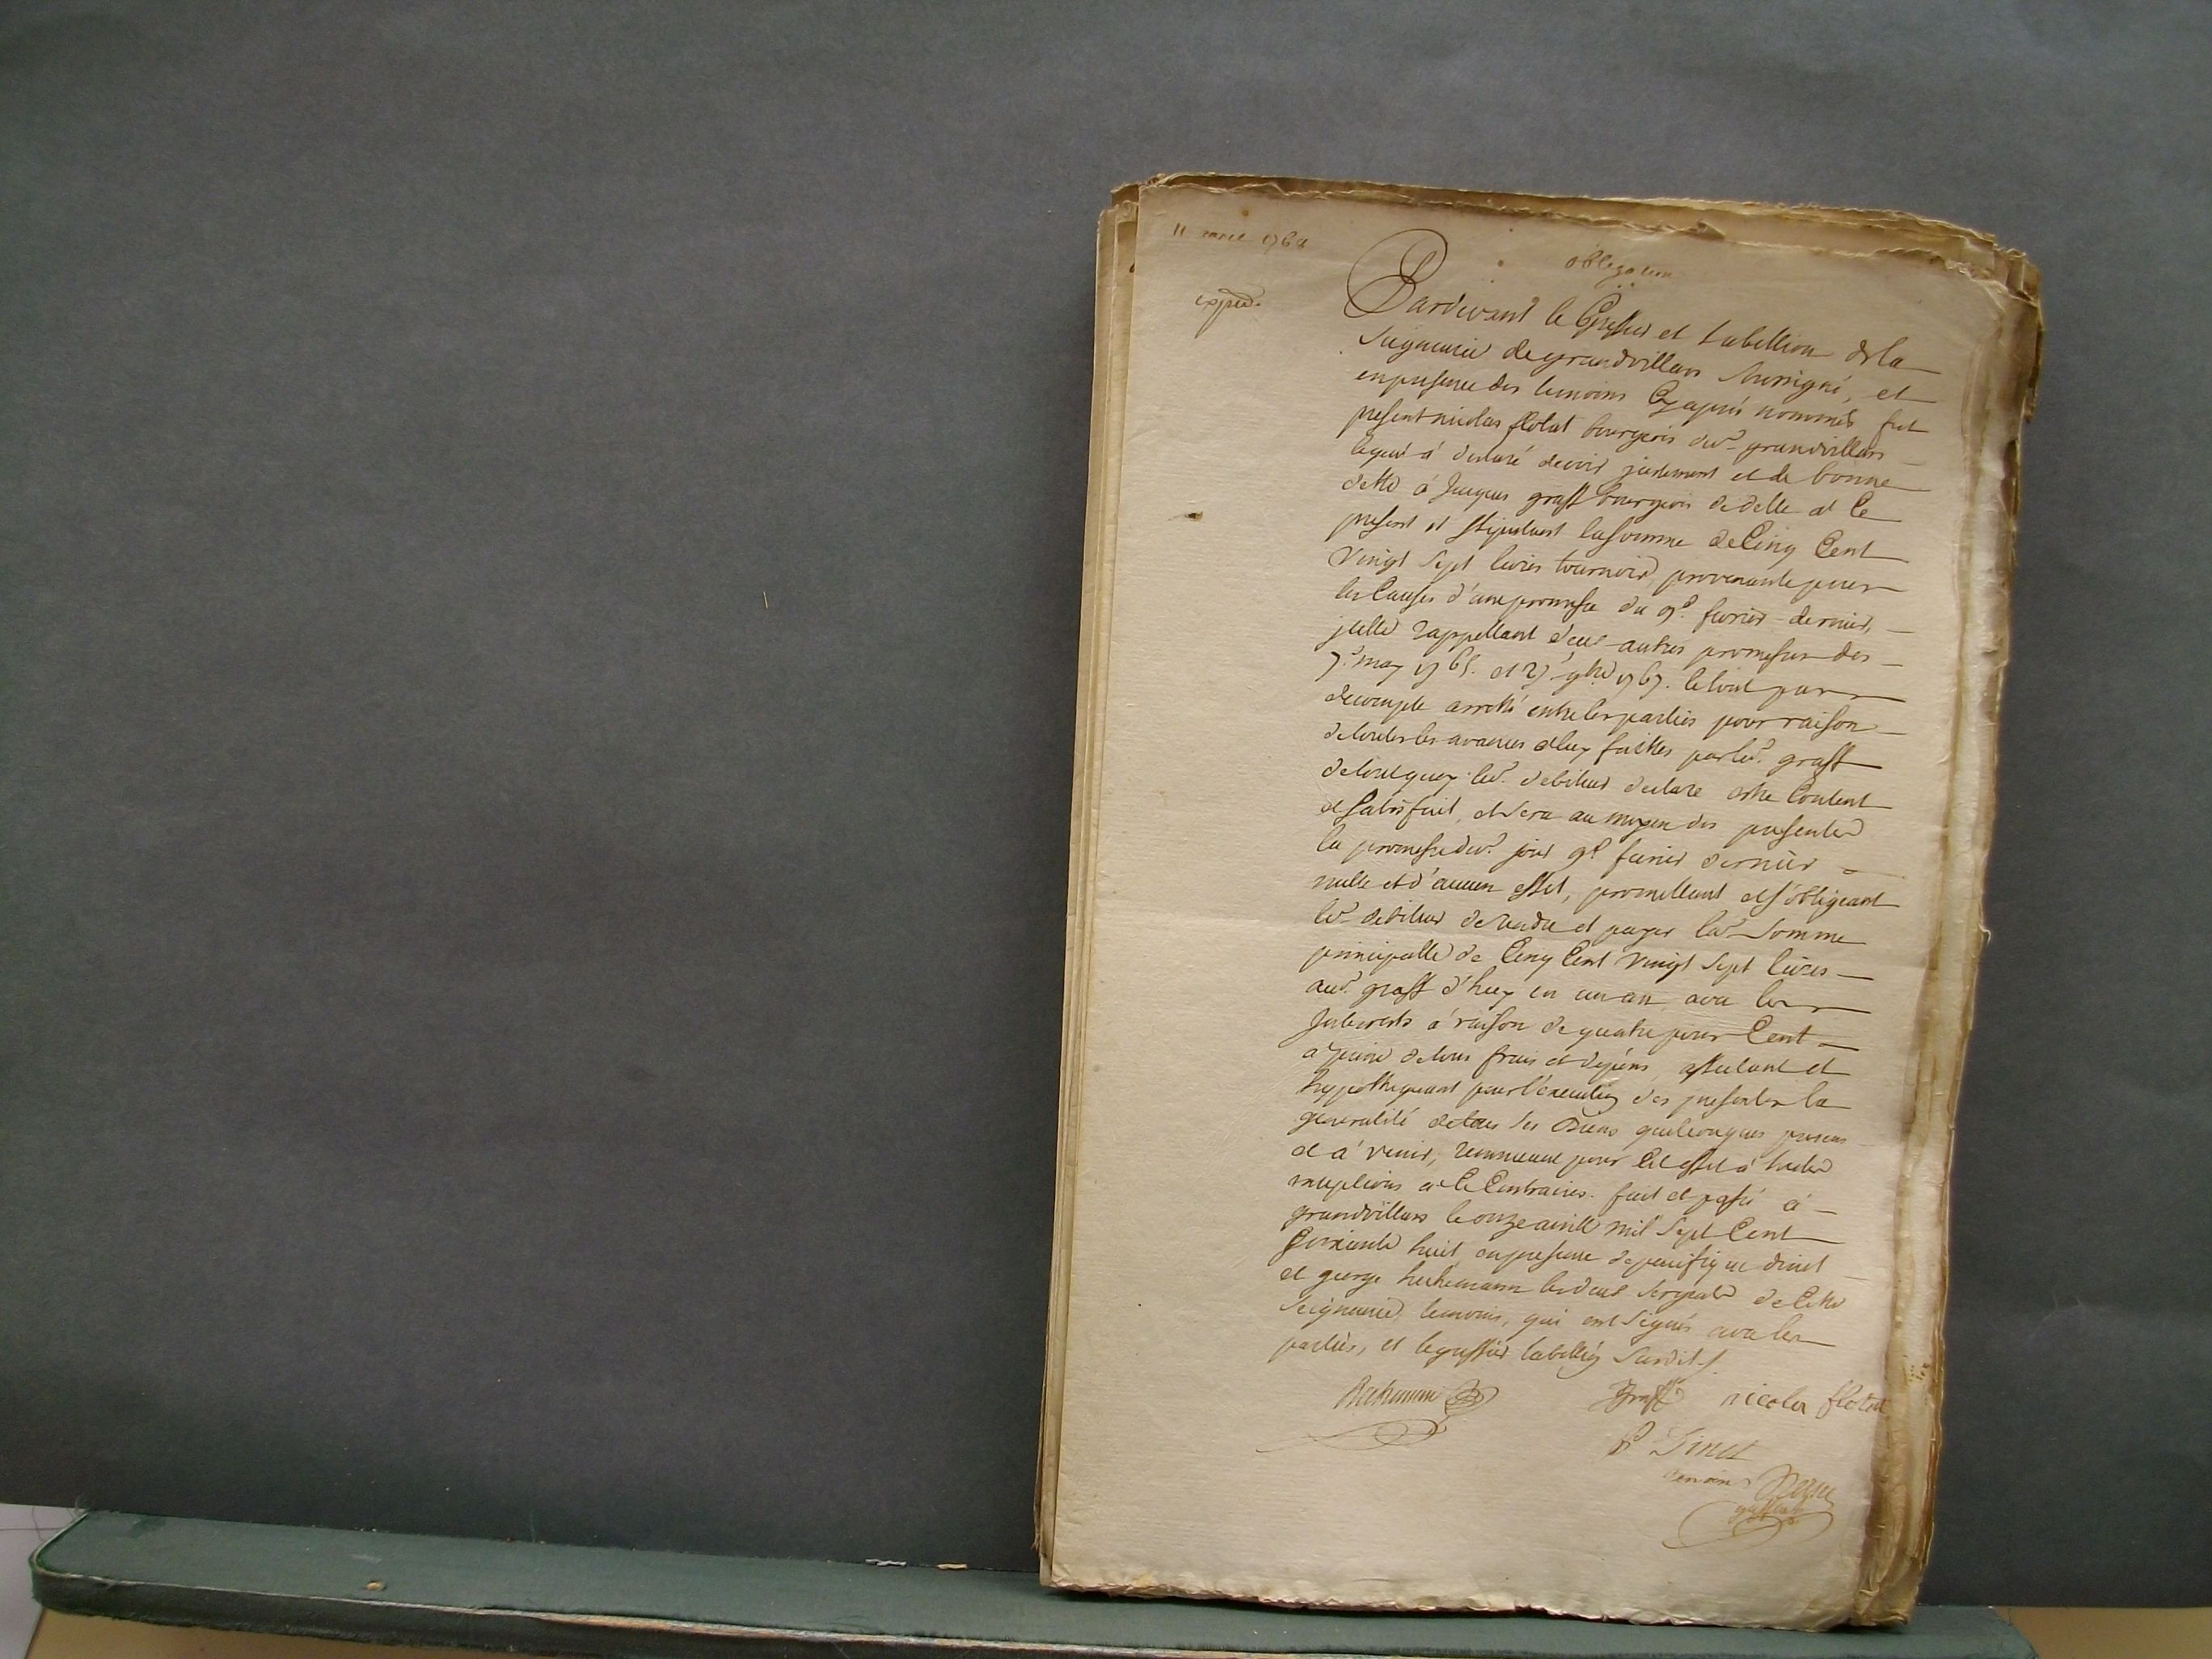 11 avril 1768
obligation
expéd.
Pardevant le Greffier et tabellion dela
Seigneurie de grandvillars Soussigné, et
enpresence des temoins Cy après nommés fut
present nicolas flotat bourgeois dud. grandvillars
lequel à declaré devoir justement et de bonne
dette à Jacques graff bourgeois de delle à ce
present et stipulant lasomme deCinq Cent
Vingt Sept livres tournois, provenante pour
les Causes d'une promesse du 9e. fevrier dernier,
jcelle rappellant deux autres promesses des
7e. may 1765. et 27e. 9bre 1767. letout par
decompte arretté entre les parties pour raison
detoutes les avances aluy faittes parled. graff
detoutquoy led. debiteur declare estre Content
et satisfait, et sera au moyen des presentes
la promesse dud. jour 9e fevrier dernier
nulle et d'aucun effet, promettant et s'obligeant
led. debiteur de rendre et payer lad. Somme
principalle de Cinq Cent Vingt Sept livres
aud. graff d'huy en un an avec les
Interests à raison de quatre pour Cent
a peine de tous frais et depens, affectant et
hypothequant pour l'execution des presentes la
generalité de tous ses Biens quelconques presens
et à venir, renonceant pour Cet effet à toutes
exceptions à Ce Contraires. fait et passé à
grandvillars le onze avril mil Sept Cent
Soixante huit, enpresence depacifique dinet
et george bechemann les deux Sergents de Cette
Seigneurie, temoins, qui ont Signés avec les
parties, et legreffier tabellion Susdit.
graff nicolas flotat
P Dinet
temoins
greffier